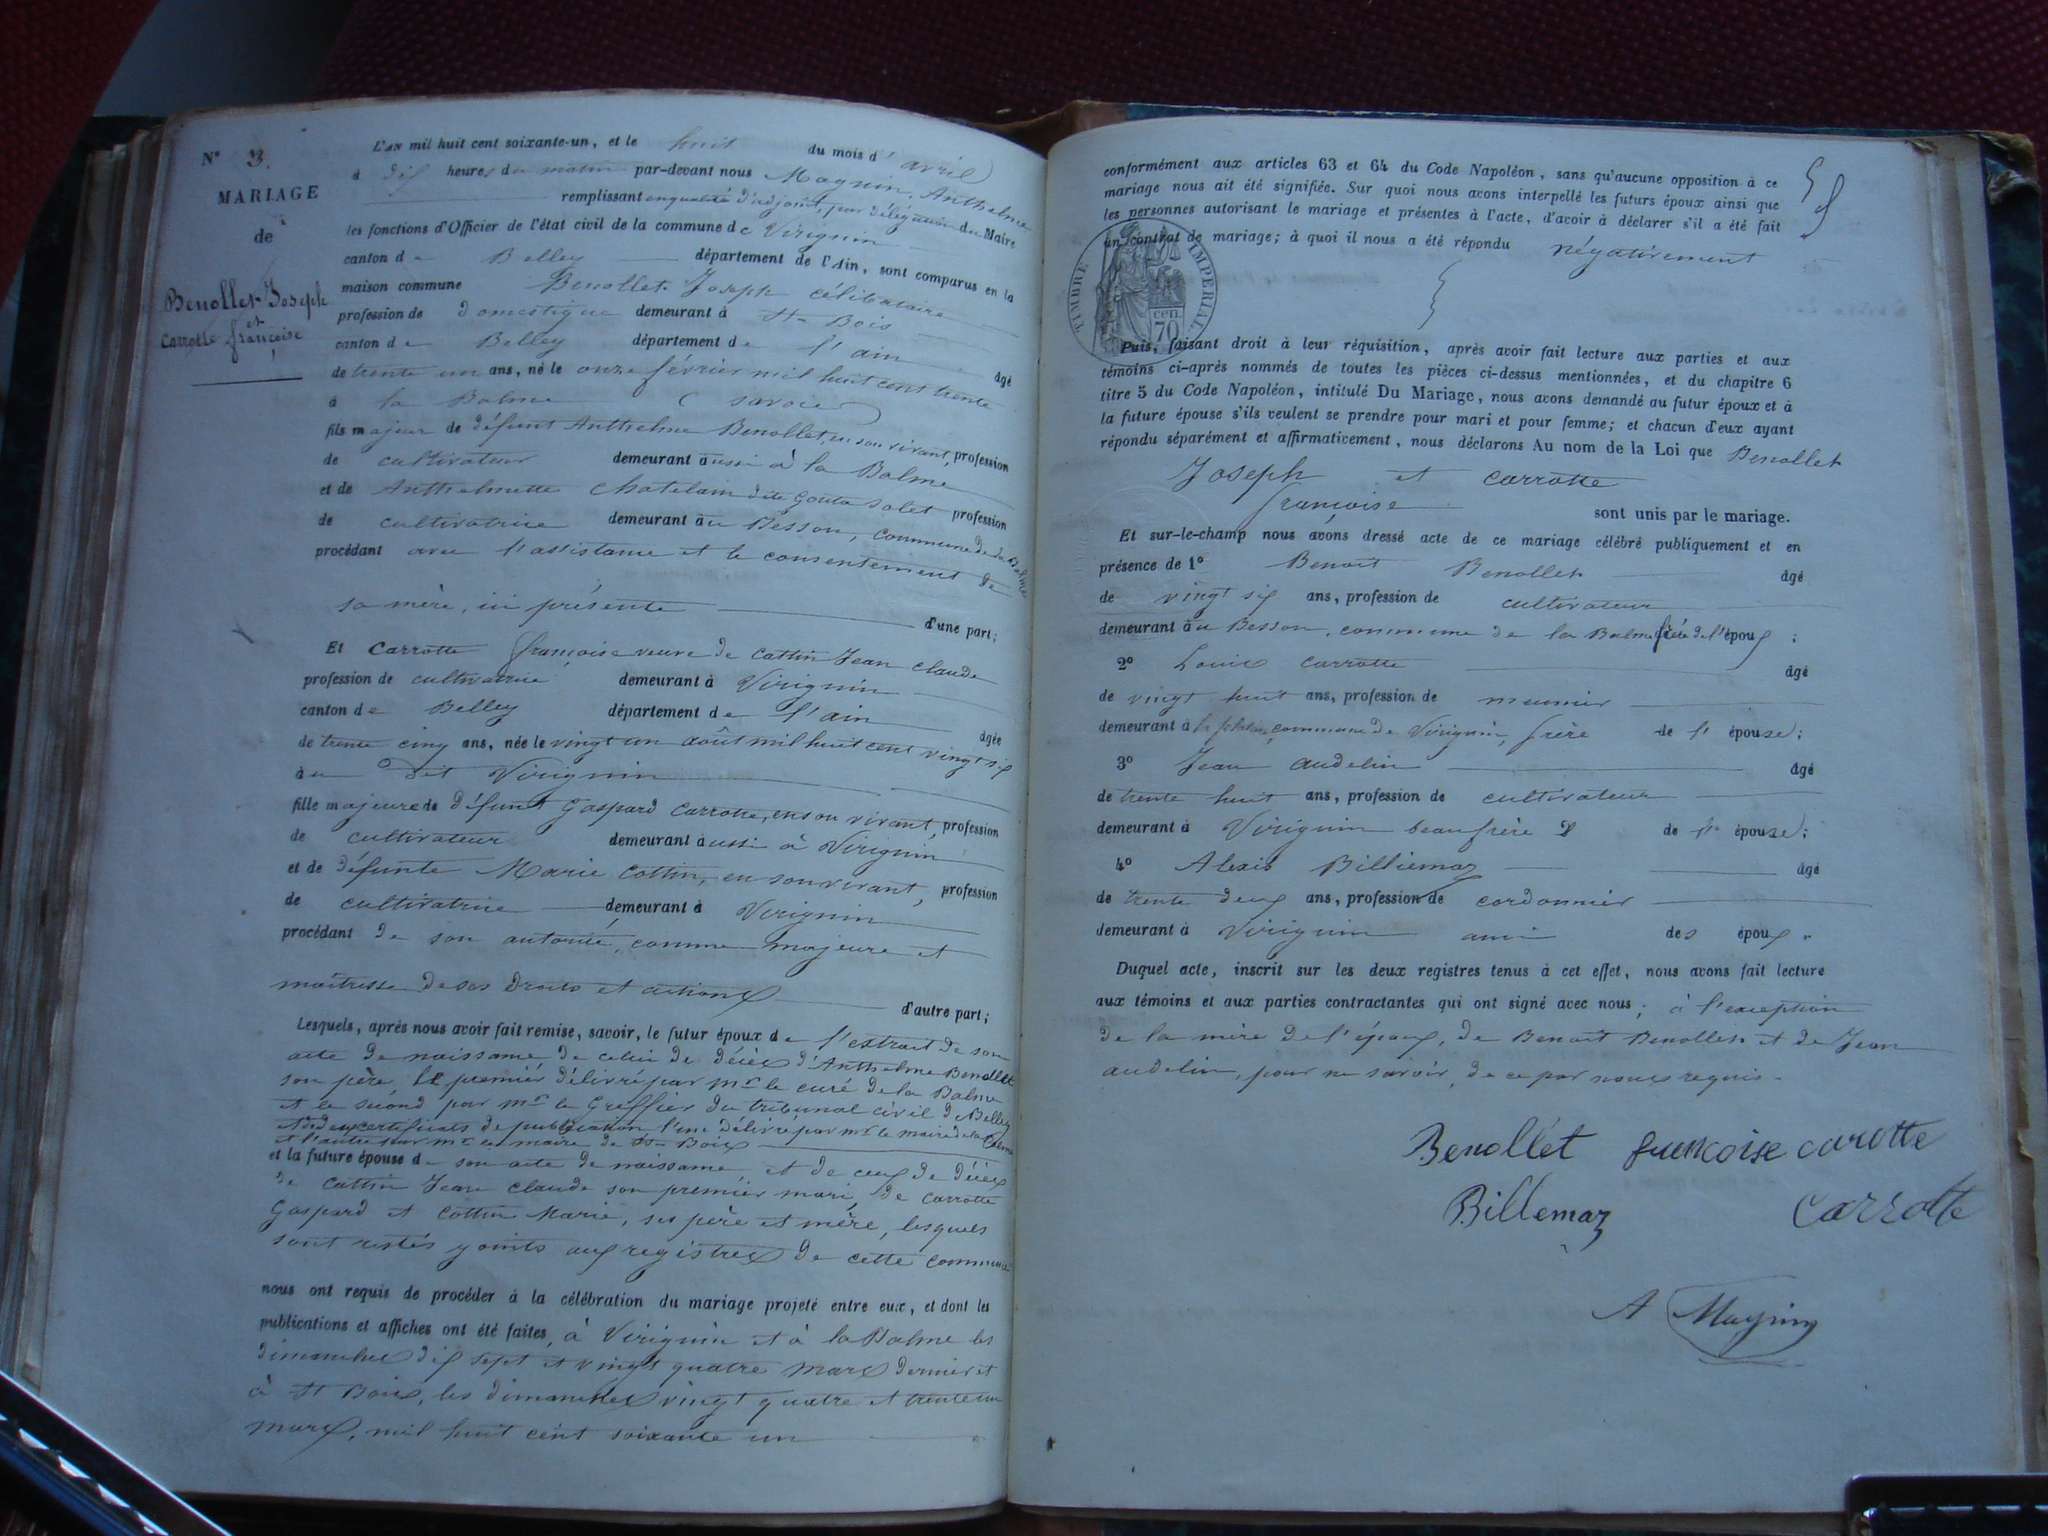 N° 3.
MARIAGE
de
Benollet Joseph
et
Carrotte françoise
L'AN mil huit cent soixante-un, et le huit du mois d'avril
à dix heures du matin par-devant nous Magnin, Anthelme
remplissant en qualité d'adjoint, par délégation du Maire
les fonctions d'Officier de l'état civil de la commune de Virignin
canton de Belley département de l'Ain, sont comparus en la
maison commune Benollet Joseph célibataire
profession de domestique demeurant à St Bois
canton de Belley département de l'ain
âgé de trente un ans, né le onze février mil huit cent trente
à la Balme (savoie)
fils majeur de défunt Anthelme Benollet, en son vivant, profession
de cultivateur demeurant aussi à la Balme
et de Anthelmette Chatelain dite Gouta Solet profession
de cultivatrice demeurant au Besson, commune de la Balme
procédant avec l'assistance et le consentement de
sa mère, ici présente d'une part;
Et Carrotte françoise veuve de Cattin Jean Claude
profession de cultivatrice demeurant à Virignin
canton de Belley département de l'ain
âgée de trente cinq ans, née le vingt un août mil huit cent vingt six
au dit Virignin
fille majeure de défunt Gaspard Carrotte, en son vivant, profession
de cultivateur demeurant aussi à Virignin
et de défunte Marie Cottin, en son vivant, profession
de cultivatrice demeurant à Virignin
procédant de son autorité, comme majeure et
maîtresse de ses droits et actions d'autre part;
Lesquels, après nous avoir fait remise, savoir, le futur époux de l'extrait de son
acte de naissance de celui de décès d'Anthelme Benollet
son père, le premier délivré par mr le curé de la Balme
et le second par mr le Greffier du tribunal civil de Belley
et deux certificats de publication l'un délivré par mr le maire de la Balme
et l'autre par mr le maire de St Bois
et la future épouse de son acte de naissance et de ceux de décès
de Cattin Jean Claude son premier mari, de Carrotte
Gaspard et Cottin Marie, ses père et mère, lesquels
sont restés joints aux registres de cette commune
nous ont requis de procéder à la célébration du mariage projeté entre eux, et dont les
publications et affiches ont été faites, à Virignin et à la Balme les
dimanches dix sept et vingt quatre mars dernier et
à St Bois, les dimanches vingt quatre et trente un
mars, mil huit cent soixante un
conformément aux articles 63 et 64 du Code Napoléon, sans qu'aucune opposition à ce
mariage nous ait été signifiée. Sur quoi nous avons interpellé les futurs époux ainsi que
les personnes autorisant le mariage et présentes à l'acte, d'avoir à déclarer s'il a été fait
un contrat de mariage; à quoi il nous a été répondu négativement
TIMBRE IMPERIAL
70 cen
Puis, faisant droit à leur réquisition, après avoir fait lecture aux parties et aux
témoins ci-après nommés de toutes les pièces ci-dessus mentionnées, et du chapitre 6
titre 5 du Code Napoléon, intitulé Du Mariage, nous avons demandé au futur époux et à
la future épouse s'ils veulent se prendre pour mari et pour femme; et chacun d'eux ayant
répondu séparément et affirmativement, nous déclarons Au nom de la Loi que Benollet
Joseph et Carrotte
françoise sont unis par le mariage.
Et sur-le-champ nous avons dressé acte de ce mariage célébré publiquement et en
présence de 1° Benoit Benollet âgé
de vingt six ans, profession de cultivateur
demeurant au Besson, commune de la Balme frère de l'époux;
2° Louis Carrotte âgé
de vingt huit ans, profession de meunier
demeurant à commune de Virignin, frère de l'épouse;
3° Jean Audelin âgé
de trente huit ans, profession de cultivateur
demeurant à Virignin beaufrère de l'épouse;
4° Alexis Billiemaz âgé
de trente deux ans, profession de cordonnier
demeurant à Virignin ami des époux.
Duquel acte, inscrit sur les deux registres tenus à cet effet, nous avons fait lecture
aux témoins et aux parties contractantes qui ont signé avec nous; à l'exception
de la mère de l'époux, de Benoît Benollet et de Jean
audelin, pour ne savoir, de ce par nous requis.
Benollet françoise carotte
Billemaz Carrotte
A Magnin